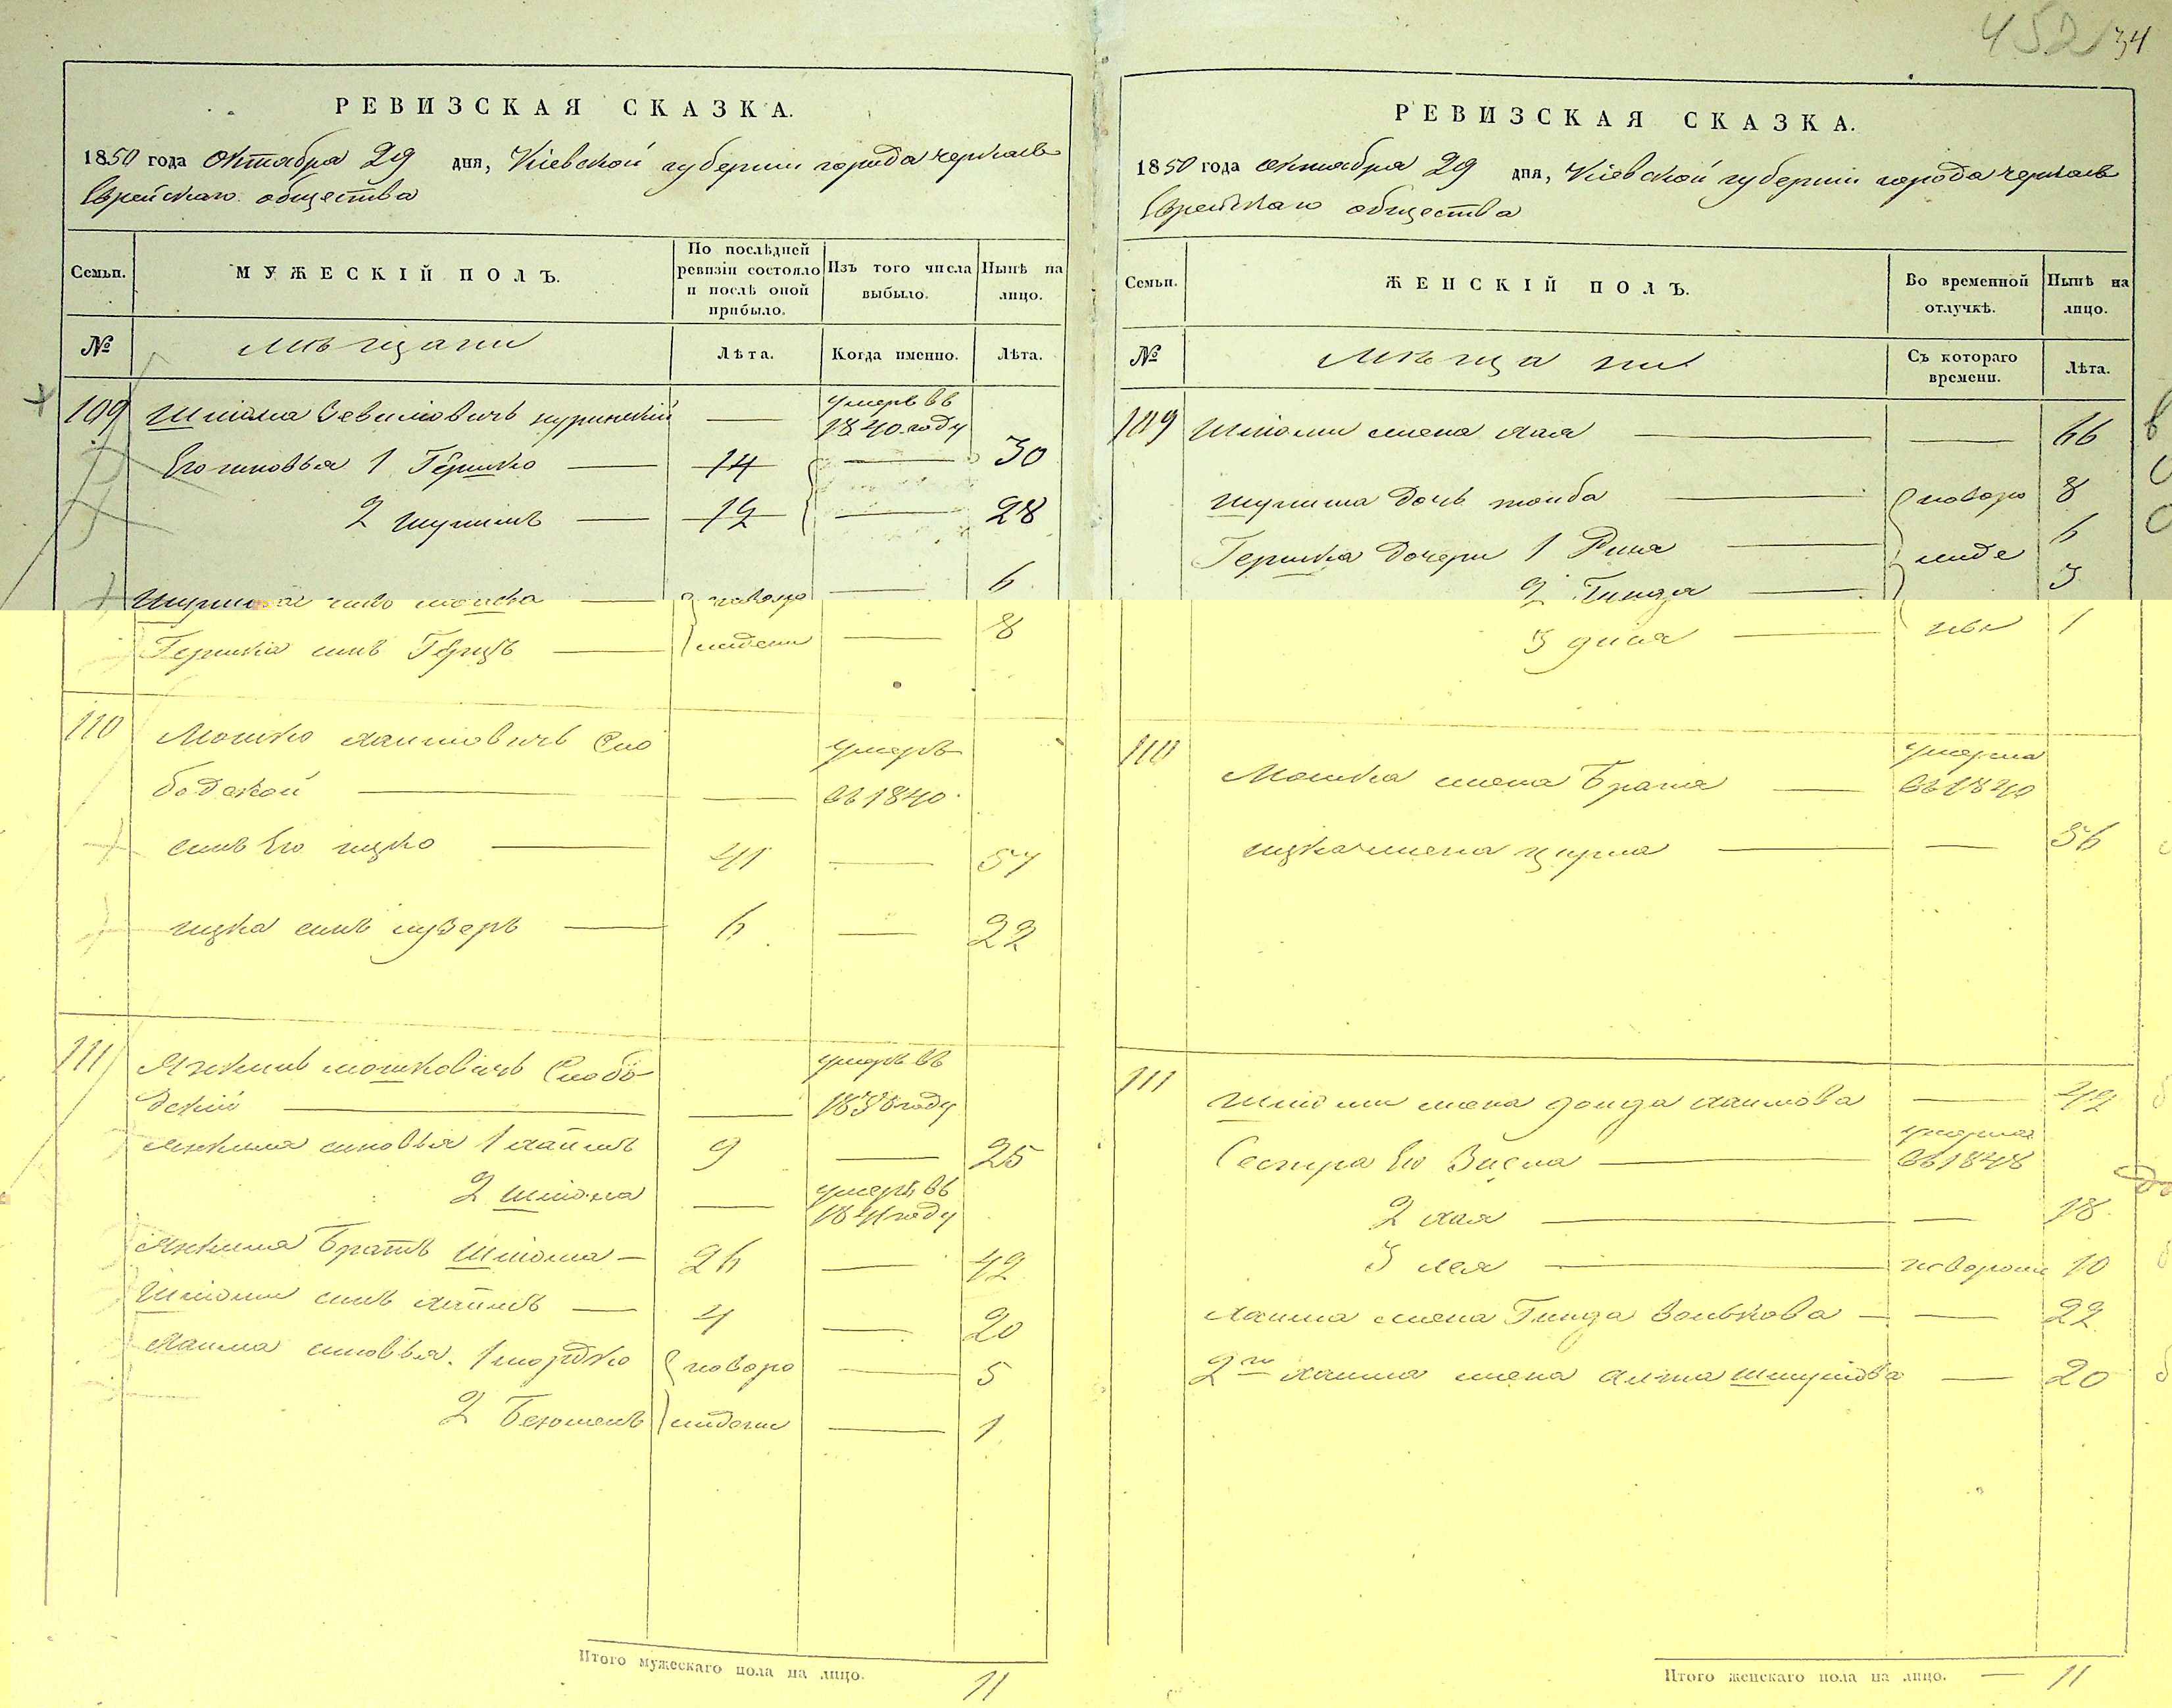 452 34
РЕВИЗСКАЯ СКАЗКА.
1850 года Октября 29 дня, Кіевской губерніи города Черкасъ
Еврейскаго общества
Семьи. МУЖЕСКІЙ ПОЛЪ. По послѣдней ревизіи состояло и послѣ оной прибыло. Изъ того числа выбыло. Нынѣ на лицо.
№ Мѣщани Лѣта. Когда именно. Лѣта.
109 Шліома Севиліовичъ умеръ въ 1840 году
Его сыновья 1 Гершко 14 30
2 Шулимъ 12 28
Шулима сынъ Мошка новоро 6
Гершка сынъ Герцъ жденн 8
110 Мошко Хаимовичъ Сло умеръ
бодской въ 1840
сынъ Его Ицко 41 57
Ицка сынъ Лузеръ 6 22
111 Янкель Мошковичъ Слобо умеръ въ
дскій 1838 году
Янкеля сыновья 1 Хаимъ 9 25
2 Шліома умеръ въ 1841 году
Янкеля братъ Шліома 26 42
Шліоми сынъ Хаимъ 4 20
Хаима сыновья. 1 Мордко новоро 5
2 ждени 1
Итого мужескаго пола на лицо. 11
РЕВИЗСКАЯ СКАЗКА.
1850 года Октября 29 дня, Кіевской губерніи города Черкасъ
Еврейскаго общества
Семьи. ЖЕНСКІЙ ПОЛЪ. Во временной отлучкѣ. Нынѣ на лицо.
№ Мѣщани Съ котораго времени. Лѣта.
109 Шліоми жена Хая 66
Шулима дочь Тойба новоро 8
Гершка дочери 1 жде 6
2 Гинда 3
3 ны 1
110 Мошка жена умерла въ 1840
Ицка жена Цурка 56
111 Шліоми жена Хаимова 42
Сестра Ею умерла въ 1848
2 Хая 18
3 Лея новорож 10
Хаима жена Гинда Волькова 22
2й Хаима жена Шмулiова 20
Итого женскаго пола на лицо. 11